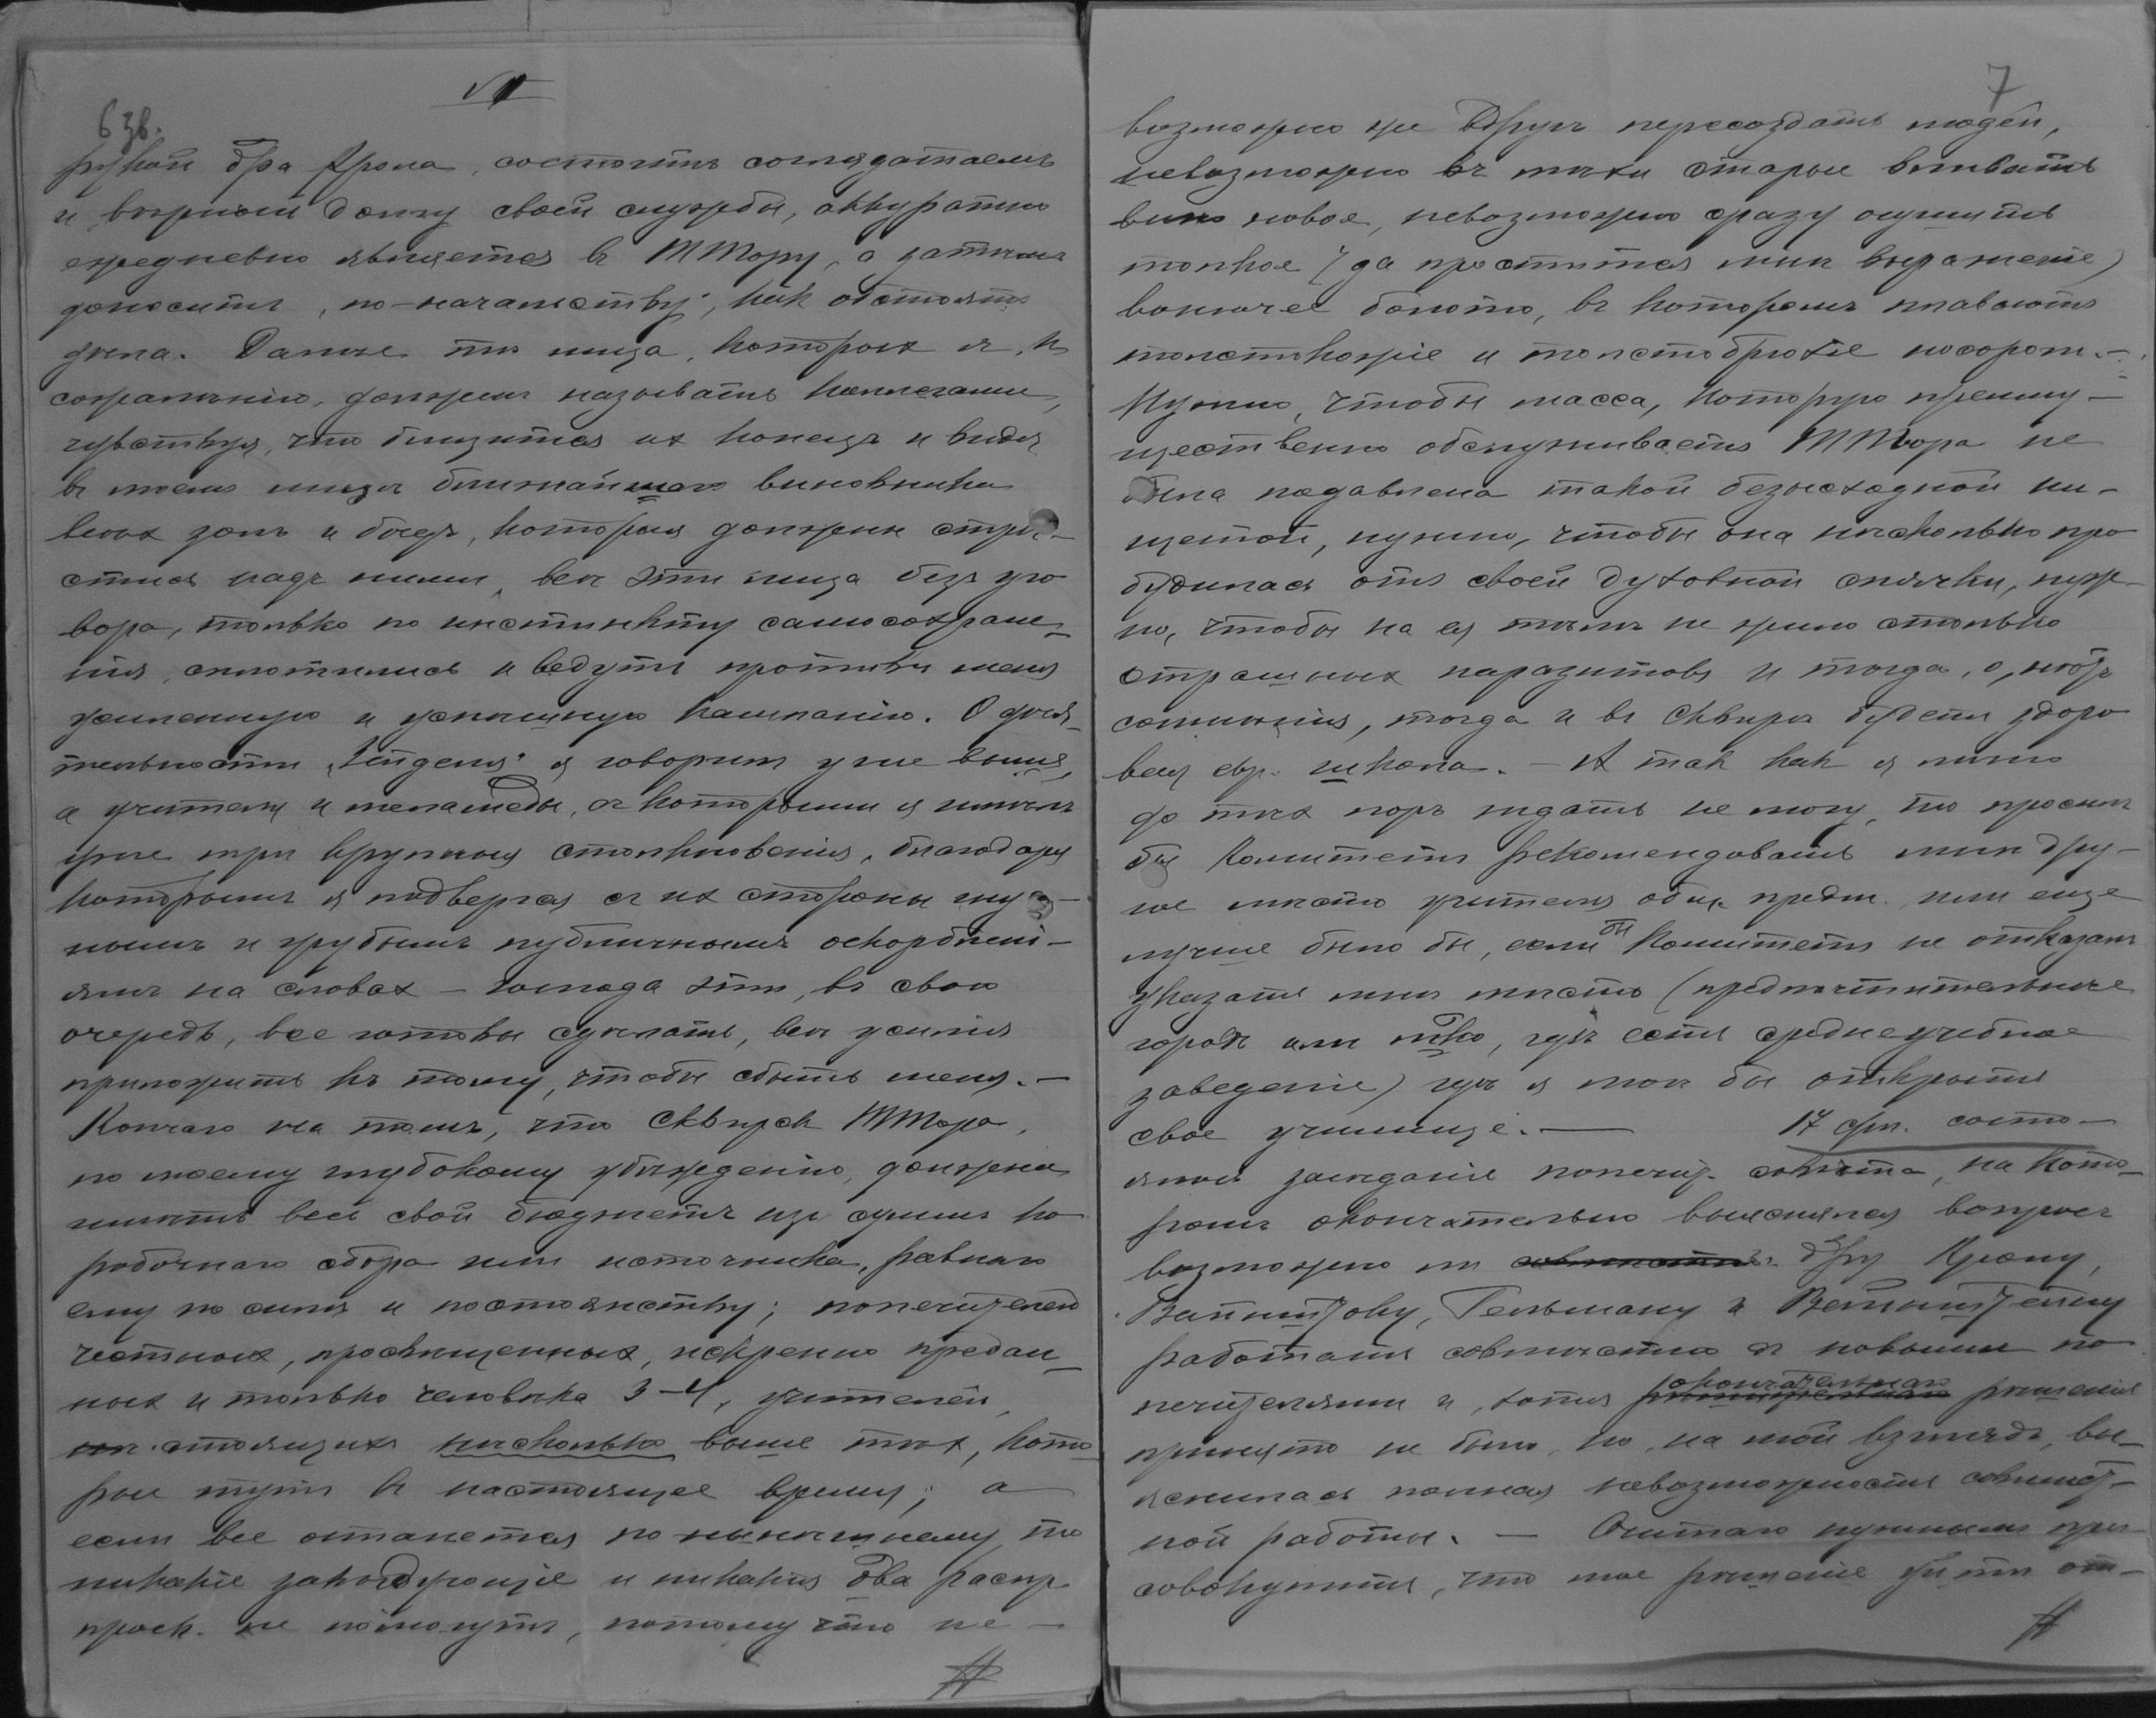 VI
6 зв.
рукой д-ра Крона, состоитъ соглядатаемъ
и, верный долгу своей службы, аккуратно
ежедневно является въ ТТору, а затѣмъ
доноситъ, по-начальству, как обстоятъ
дѣла. Далѣе тѣ лица, которых я, къ
сожалѣнію, долженъ называть коллегами,
чувствуя, что близится их конецъ и видя
въ моемъ лицѣ ближайшаго виновника
всѣх золъ и бѣдъ, которыя должны стря-
стись надъ ними, всѣ эти лица безъ уго
вора, только по инстинкту самосохране-
нія, сплотились и ведутъ противъ меня
усиленную и успѣшную кампанію. О дѣя-
тельности я говорилъ уже выше,
а учителя и меламеды, съ которыми я имѣлъ
уже три крупныя столкновенія, благодаря
которымъ я подвергся съ их стороны
нымъ и грубымъ публичнымъ оскорблені-
ямъ на словах – господа эти, въ свою
очередь, все готовы сдѣлать, всѣ усилія
приложить къ тому, чтобы сбыть меня. –
Кончаю на томъ, что Сквирск ТТора,
по моему глубокому убѣжденію, должна
имѣть весь свой бюджетъ изъ суммъ ко
робочнаго сбора или источника, равнаго
ему по силѣ и постоянству; попечителей
честных, просвѣщенных, искренно предан-
ных и только человѣка 3–4, учителей,
стоящихъ нѣсколько выше тѣх, кото-
рые тутъ въ настоящее время; а
если все останется по нынѣшнему, то
никакіе и никакія О-ва распр.
просв. не помогутъ, потому что не –
7
возможно же вдругъ пересоздать людей,
невозможно въ мѣхи старые вливать
вино новое, невозможно сразу осушить
топкое (да простится мнѣ выраженіе)
вонючее болото, въ которомъ плаваютъ
толстокожіе и толстобрюхіе носороги. –
Нужно, чтобы масса, которую преиму-
щественно обслуживаетъ ТТора не
была подавлена такой безысходной ни-
щетой, нужно, чтобы она нѣсколько про
будилась отъ своей духовной спячки, нуж-
но, чтобы на ея тѣлѣ не жило столько
страшных паразитовъ и тогда, о, нѣтъ
сомнѣнія, тогда и въ Сквирѣ будетъ здоро
вая евр. школа. – А так как я лично
до тѣх поръ ждать не могу, то просилъ
бы Комитетъ рекомендовать мнѣ дру-
гое мѣсто учителя общ. предм. или еще
лучше было бы, если бы Комитетъ не отказалъ
указать мнѣ мѣсто (предпочтительнѣе
городъ или м-ко, гдѣ есть среднеучебное
заведеніе) гдѣ я мог бы открыть
свое училище. — 17 состо-
ялось засѣданіе попечит. совѣта, на кото-
ромъ окончательно выяснялся вопросъ
возможно ли д-ру Крону,
Гельману и
работать совмѣстно съ новыми по
печителями и, хотя окончательнаго рѣшенія
принято не было, но, на мой взглядъ, вы-
яснилась полная невозможность совмѣст-
ной работы. – Считаю нужнымъ при
совокупить, что мое рѣшеніе уйти от-